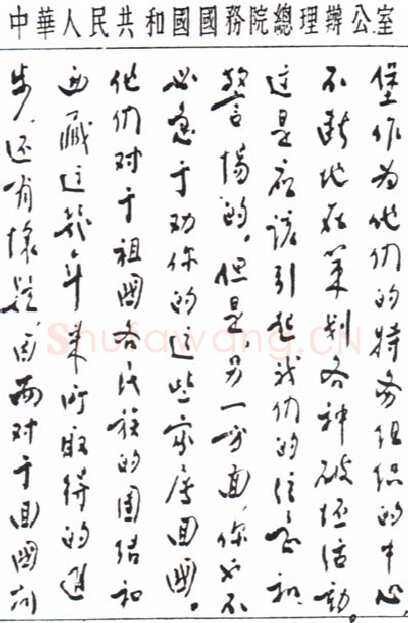 中華人民共和國國務院總理辦公室
堡作为他们的特务组织的中心,
不断地在策划各种破坏活动。
这是应该引起我们的注意和
警惕的。但是,另一方面,你也不
必急于劝你的这些家属回國。
他们对于祖國各民族的团结和
西藏这几年来所取得的进
步,还有怀疑,因而对于回國问
Shufawang.CN